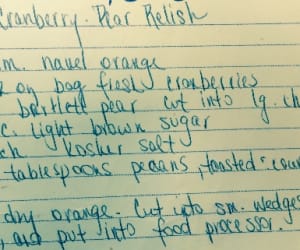 Cranberry-Pear Relish
m. navel orange
on bag fresh cranberries
bartlett pear cut into lg. ch
c. light brown sugar
ch kosher salt
tablespoons pecans, toasted
dry orange. Cut into sm. wedges
, and put into food processor.